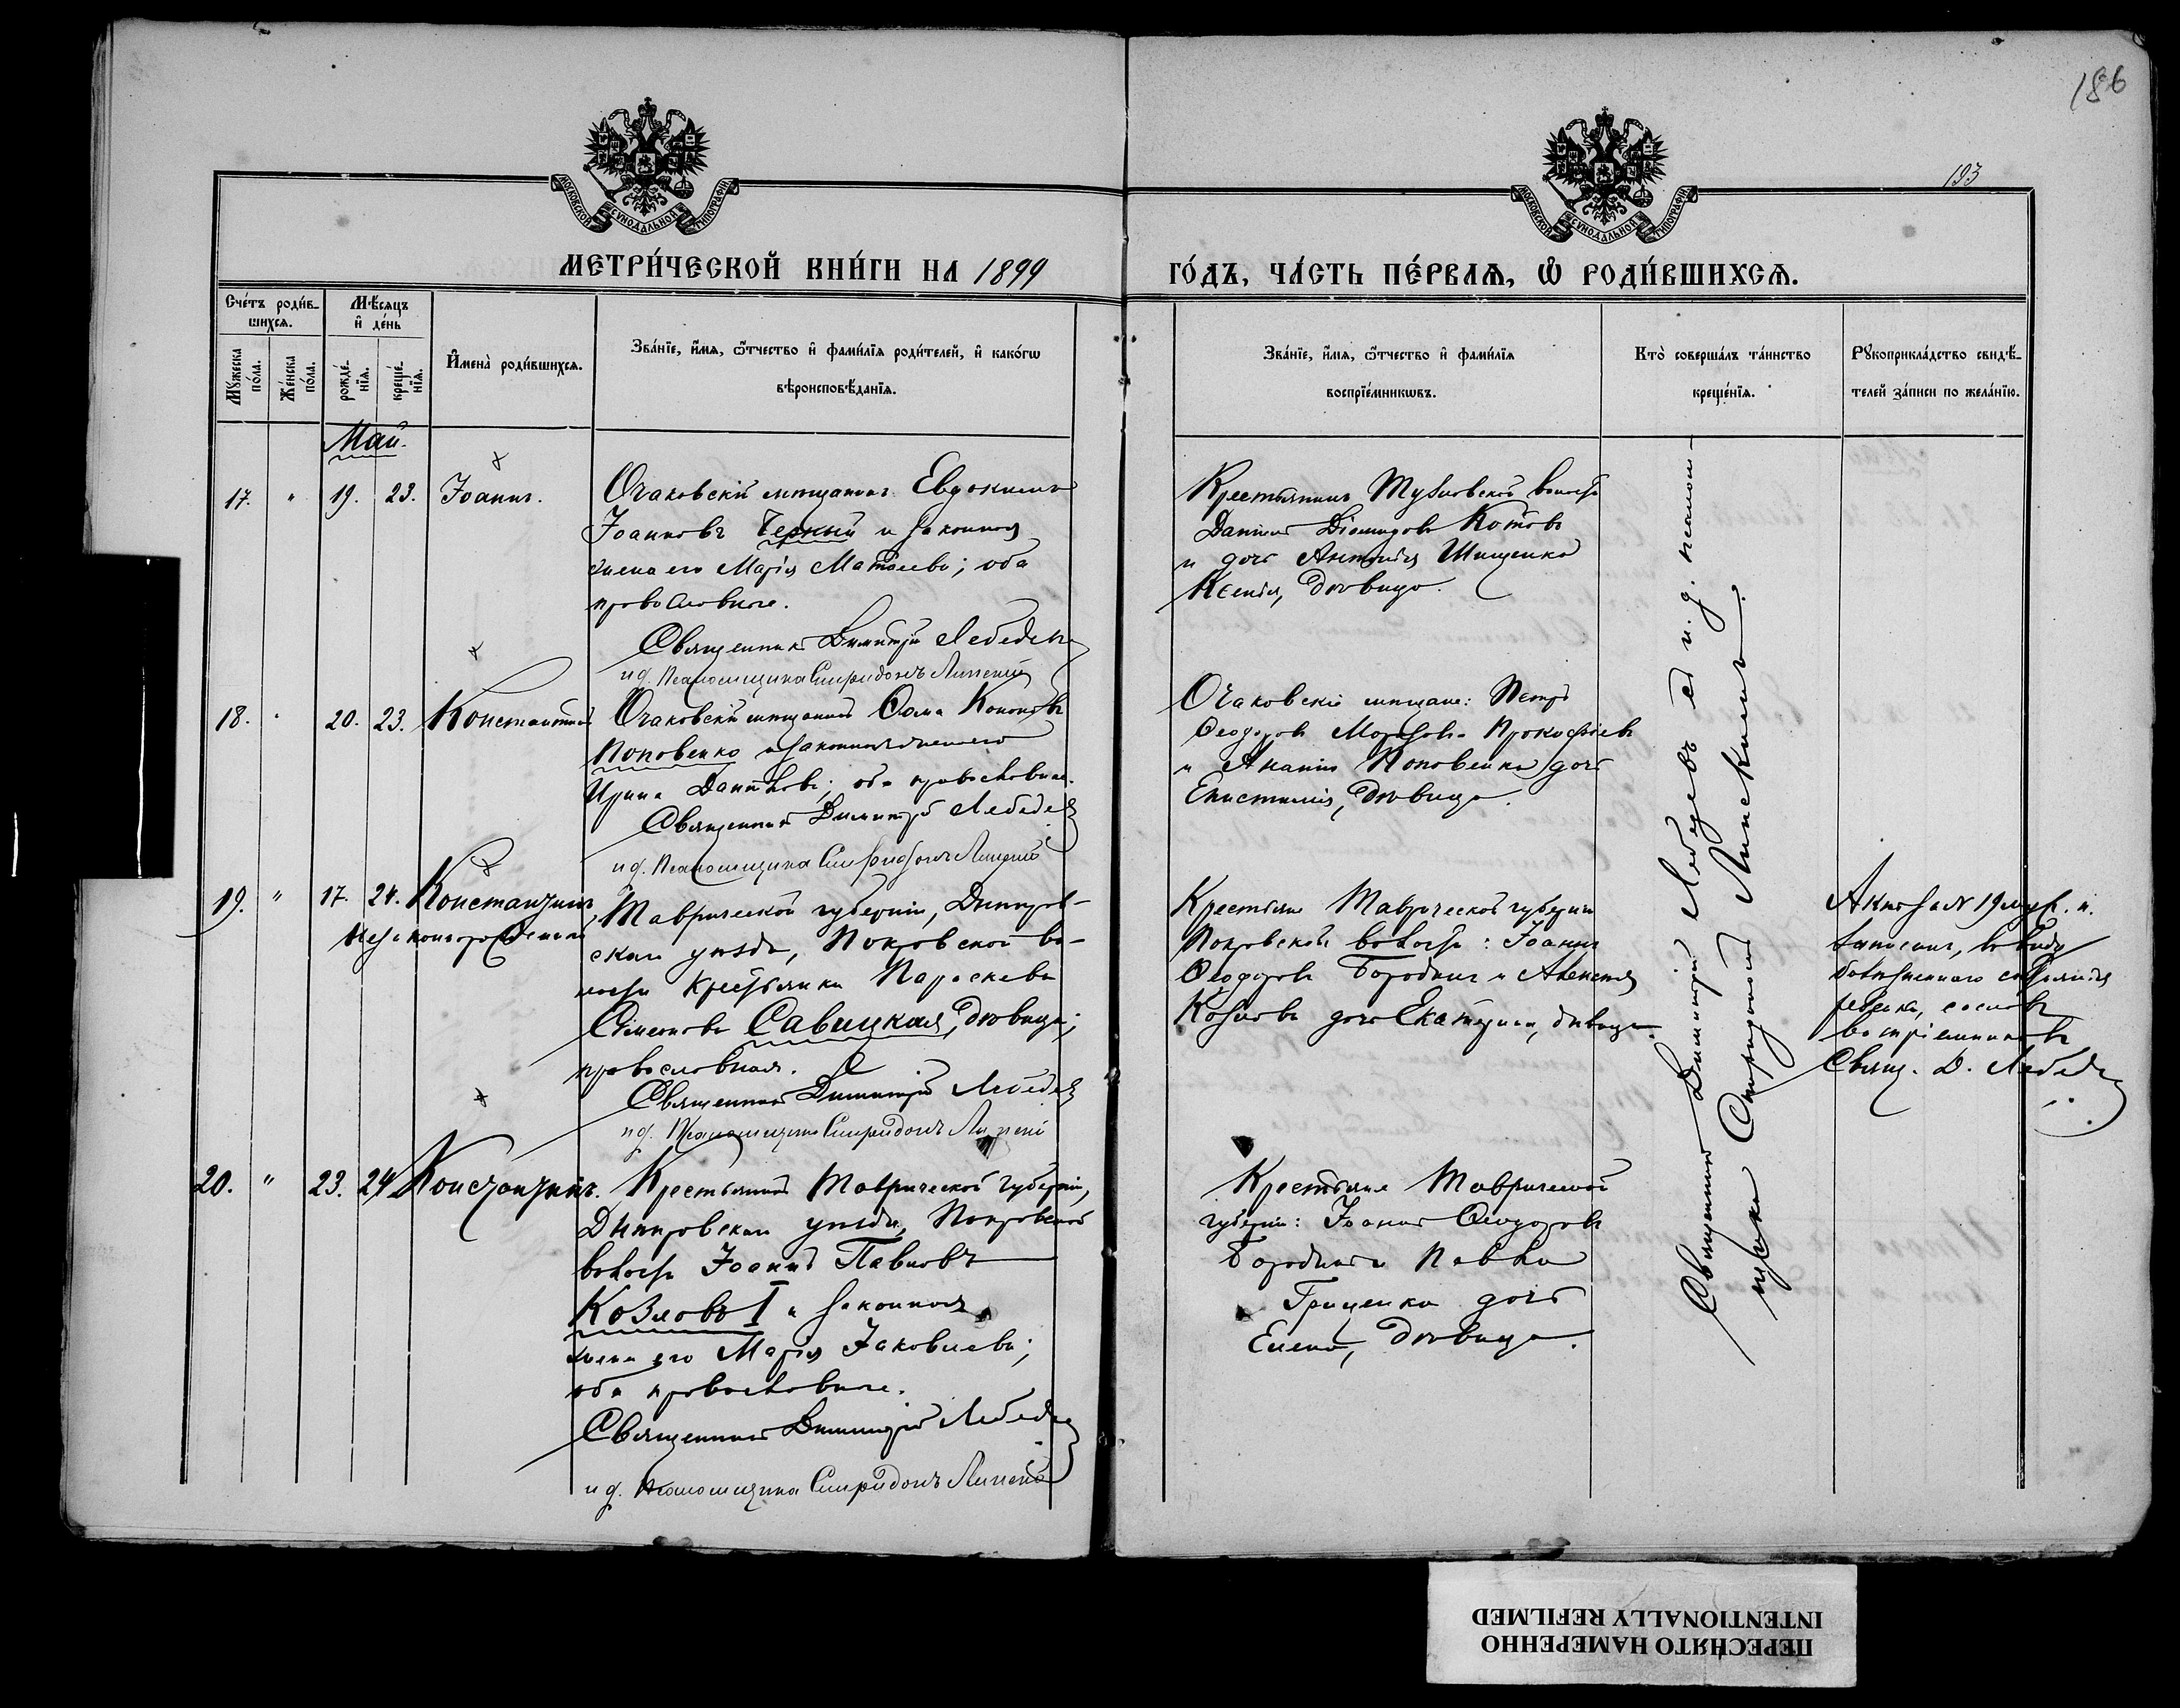 186
193
МОСКОВСКОЙ СѴНОДАЛЬНОЙ ТИПОГРАФІИ
МОСКОВСКОЙ СѴНОДАЛЬНОЙ ТИПОГРАФІИ
МЕТРИ́ЧЕСКОЙ КНИ́ГИ НА 1899
ГО́ДЪ, ЧА́СТЬ ПЕ́РВАѦ, Ѿ РОДИ́ВШИХСѦ.
Сче́тъ роди́в-
шихсѧ.
Мꙋ́жеска по́ла.
Же́нска по́ла.
Мѣ́сѧцъ
и҆ де́нь
рожде́-
нїѧ.
креще́-
нїѧ.
И҆мена̀ роди́вшихсѧ.
Зва́нїе, и҆́мѧ, ѻ҆́тчество и҆ фами́лїѧ роди́телей, и҆ како́гѡ
вѣроисповѣ́данїѧ.
Зва́нїе, и҆́мѧ, ѻ҆́тчество и҆ фами́лїѧ
воспрїе́мникѡвъ.
Кто̀ соверша́лъ та́инство
креще́нїѧ.
Рꙋкоприкла́дство свидѣ́-
телей за́писи по жела́нїю.
Май.
17. " 19. 23. Іоаннъ.
Очаковскій мѣщанинъ Евдокимъ
Іоанновъ Черный и законная
жена его Марія Матѳеева; оба
православные.
Священникъ Димитрій Лебедевъ
и д. псаломщика Спиридонъ Липскій
Крестьянинъ Тузловской волости
Даніилъ Діомидовъ Котовъ
и дочь Антонія Шищенко
Ксенія, дѣвица.
18. " 20. 23. Константинъ
Очаковскій мѣщанинъ Ѳома Кононовъ
Поповенко и законная жена его
Ирина Данилова; оба православные.
Священникъ Димитрій Лебедевъ
и д. псаломщика Спиридонъ Липскій
Очаковскіе мѣщане: Петръ
Ѳеодоровъ Прокофіевъ
и Ананіи Поповенка дочь
Епистимія, дѣвица.
19. " 17. 24. Константинъ,
незаконнорожденный
Таврической губерніи, Днѣпров-
скаго уѣзда, Покровской во-
лости крестьянка Параскева
Симеонова Савицкая, дѣвица;
православная.
Священникъ Димитрій Лебедевъ
и д. псаломщика Спиридонъ Липскій
Крестьяне Таврической губерніи
Покровской волости: Іоаннъ
Ѳеодоровъ Бородинъ и Алексія
Козлова дочь Екатерина, дѣвица.
Актъ за № 19
ребенка, со словъ
воспріемниковъ
Свящ. Д. Лебедевъ
20. " 23. 24 Константинъ.
Крестьянинъ Таврической губерніи,
Днѣпровскаго уѣзда, Покровской
волости Іоаннъ Павловъ
Козловъ I и законная
жена его Марія Іаковлева;
оба православные.
Священникъ Димитрій Лебедевъ
и д. псаломщика Спиридонъ Липскій
Крестьяне Таврической
губерніи: Іоаннъ Ѳеодоровъ
Бородинъ и Павла
Гриценка дочь
Елена, дѣвица.
Священникъ Димитрій Лебедевъ съ и. д. псалом-
щика Спиридономъ Липскимъ.
ПЕРЕСНЯТО НАМЕРЕННО
INTENTIONALLY REFILMED